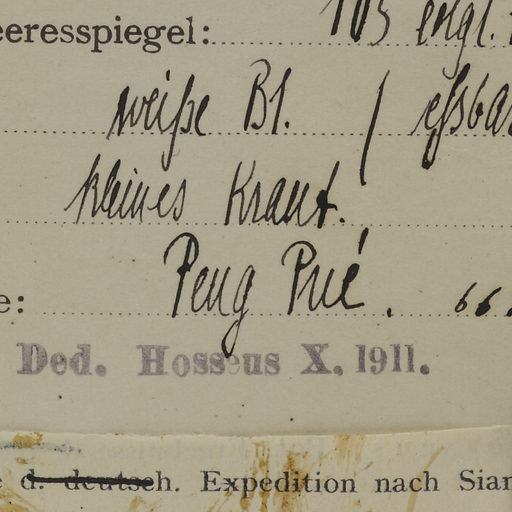 eeresspiegel: 105 engl.
weiße Bl. / essbar
kleines Kraut.
e: Peug Prié. 66.
Ded. Hosseus X. 1911.
e d. deutsch. Expedition nach Siam